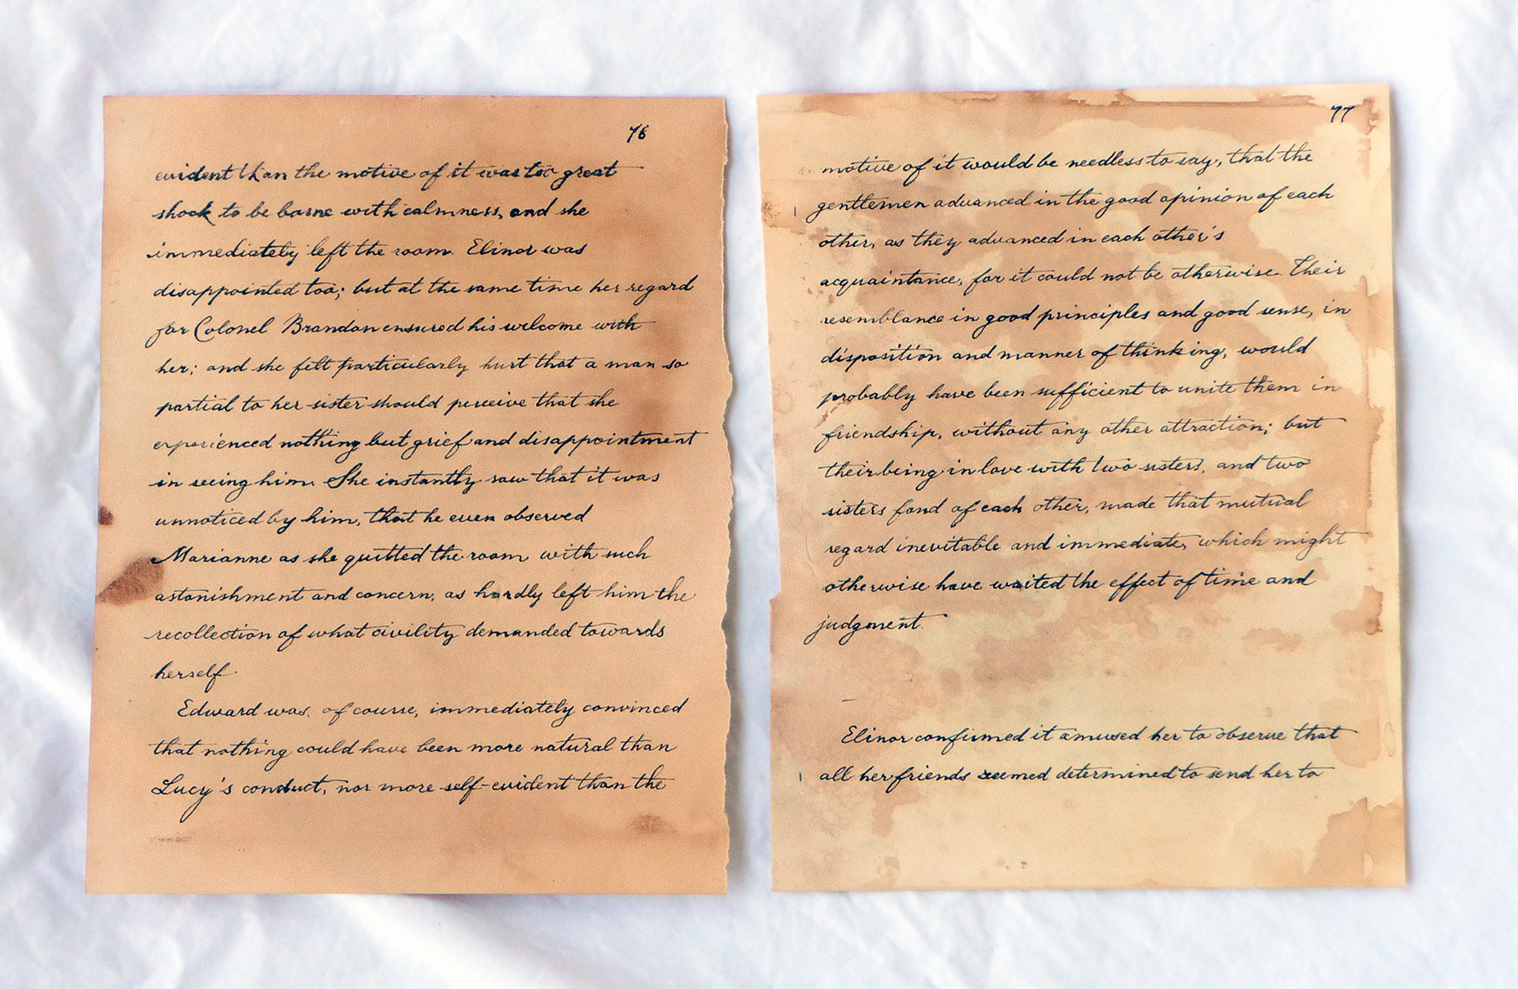 76
evident than the motive of it was too great
shock to be borne with calmness, and she
immediately left the room. Elinor was
disappointed too; but at the same time her regard
for Colonel Brandon ensured his welcome with
her; and she felt particularly hurt that a man so
partial to her sister should perceive that she
experienced nothing but grief and disappointment
in seeing him. She instantly saw that it was
unnoticed by him, that he even observed
Marianne as she quitted the room with such
astonishment and concern, as hardly left him the
recollection of what civility demanded towards
herself.
Edward was, of course, immediately convinced
that nothing could have been more natural than
Lucy's conduct, nor more self-evident than the
77
motive of it would be needless to say, that the
gentlemen advanced in the good opinion of each
other, as they advanced in each other's
acquaintance, for it could not be otherwise. Their
resemblance in good principles and good sense, in
disposition and manner of thinking, would
probably have been sufficient to unite them in
friendship, without any other attraction; but
their being in love with two sisters, and two
sisters fond of each other, made that mutual
regard inevitable and immediate, which might
otherwise have waited the effect of time and
judgment.
Elinor confirmed it amused her to observe that
all her friends seemed determined to send her to